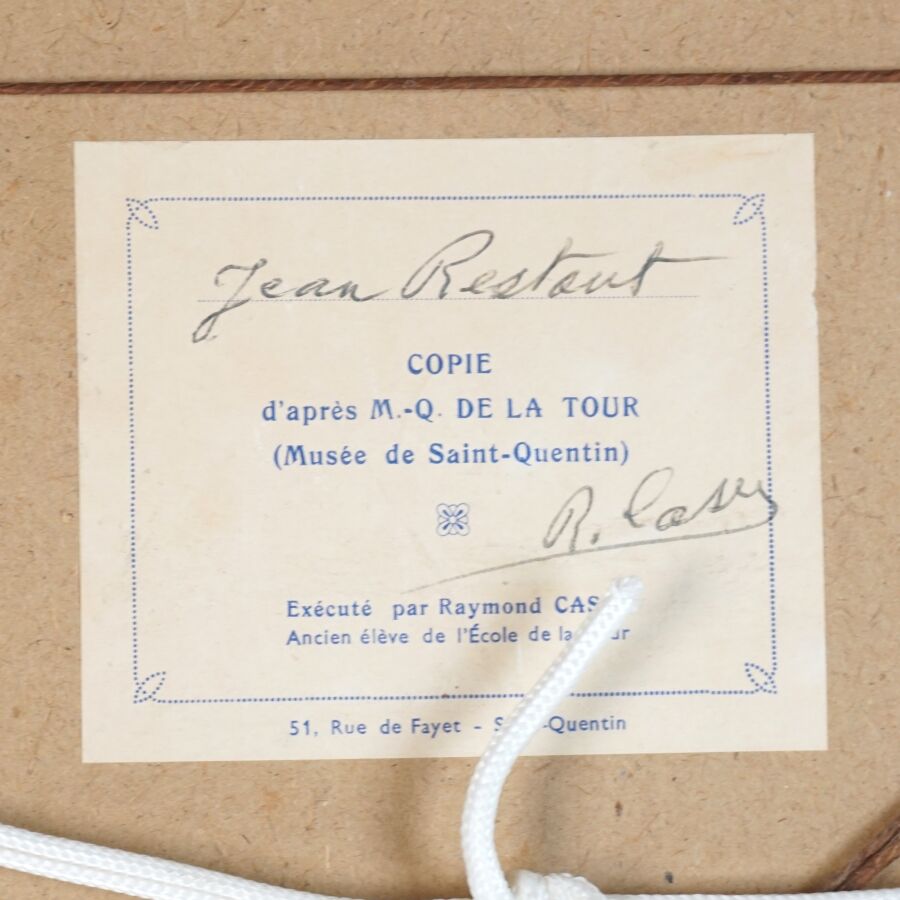 Jean Restout
COPIE
d'après M.-Q. DE LA TOUR
(Musée de Saint-Quentin)
R.
Exécuté par Raymond
Ancien élève de l'École de
51, Rue de Fayet -